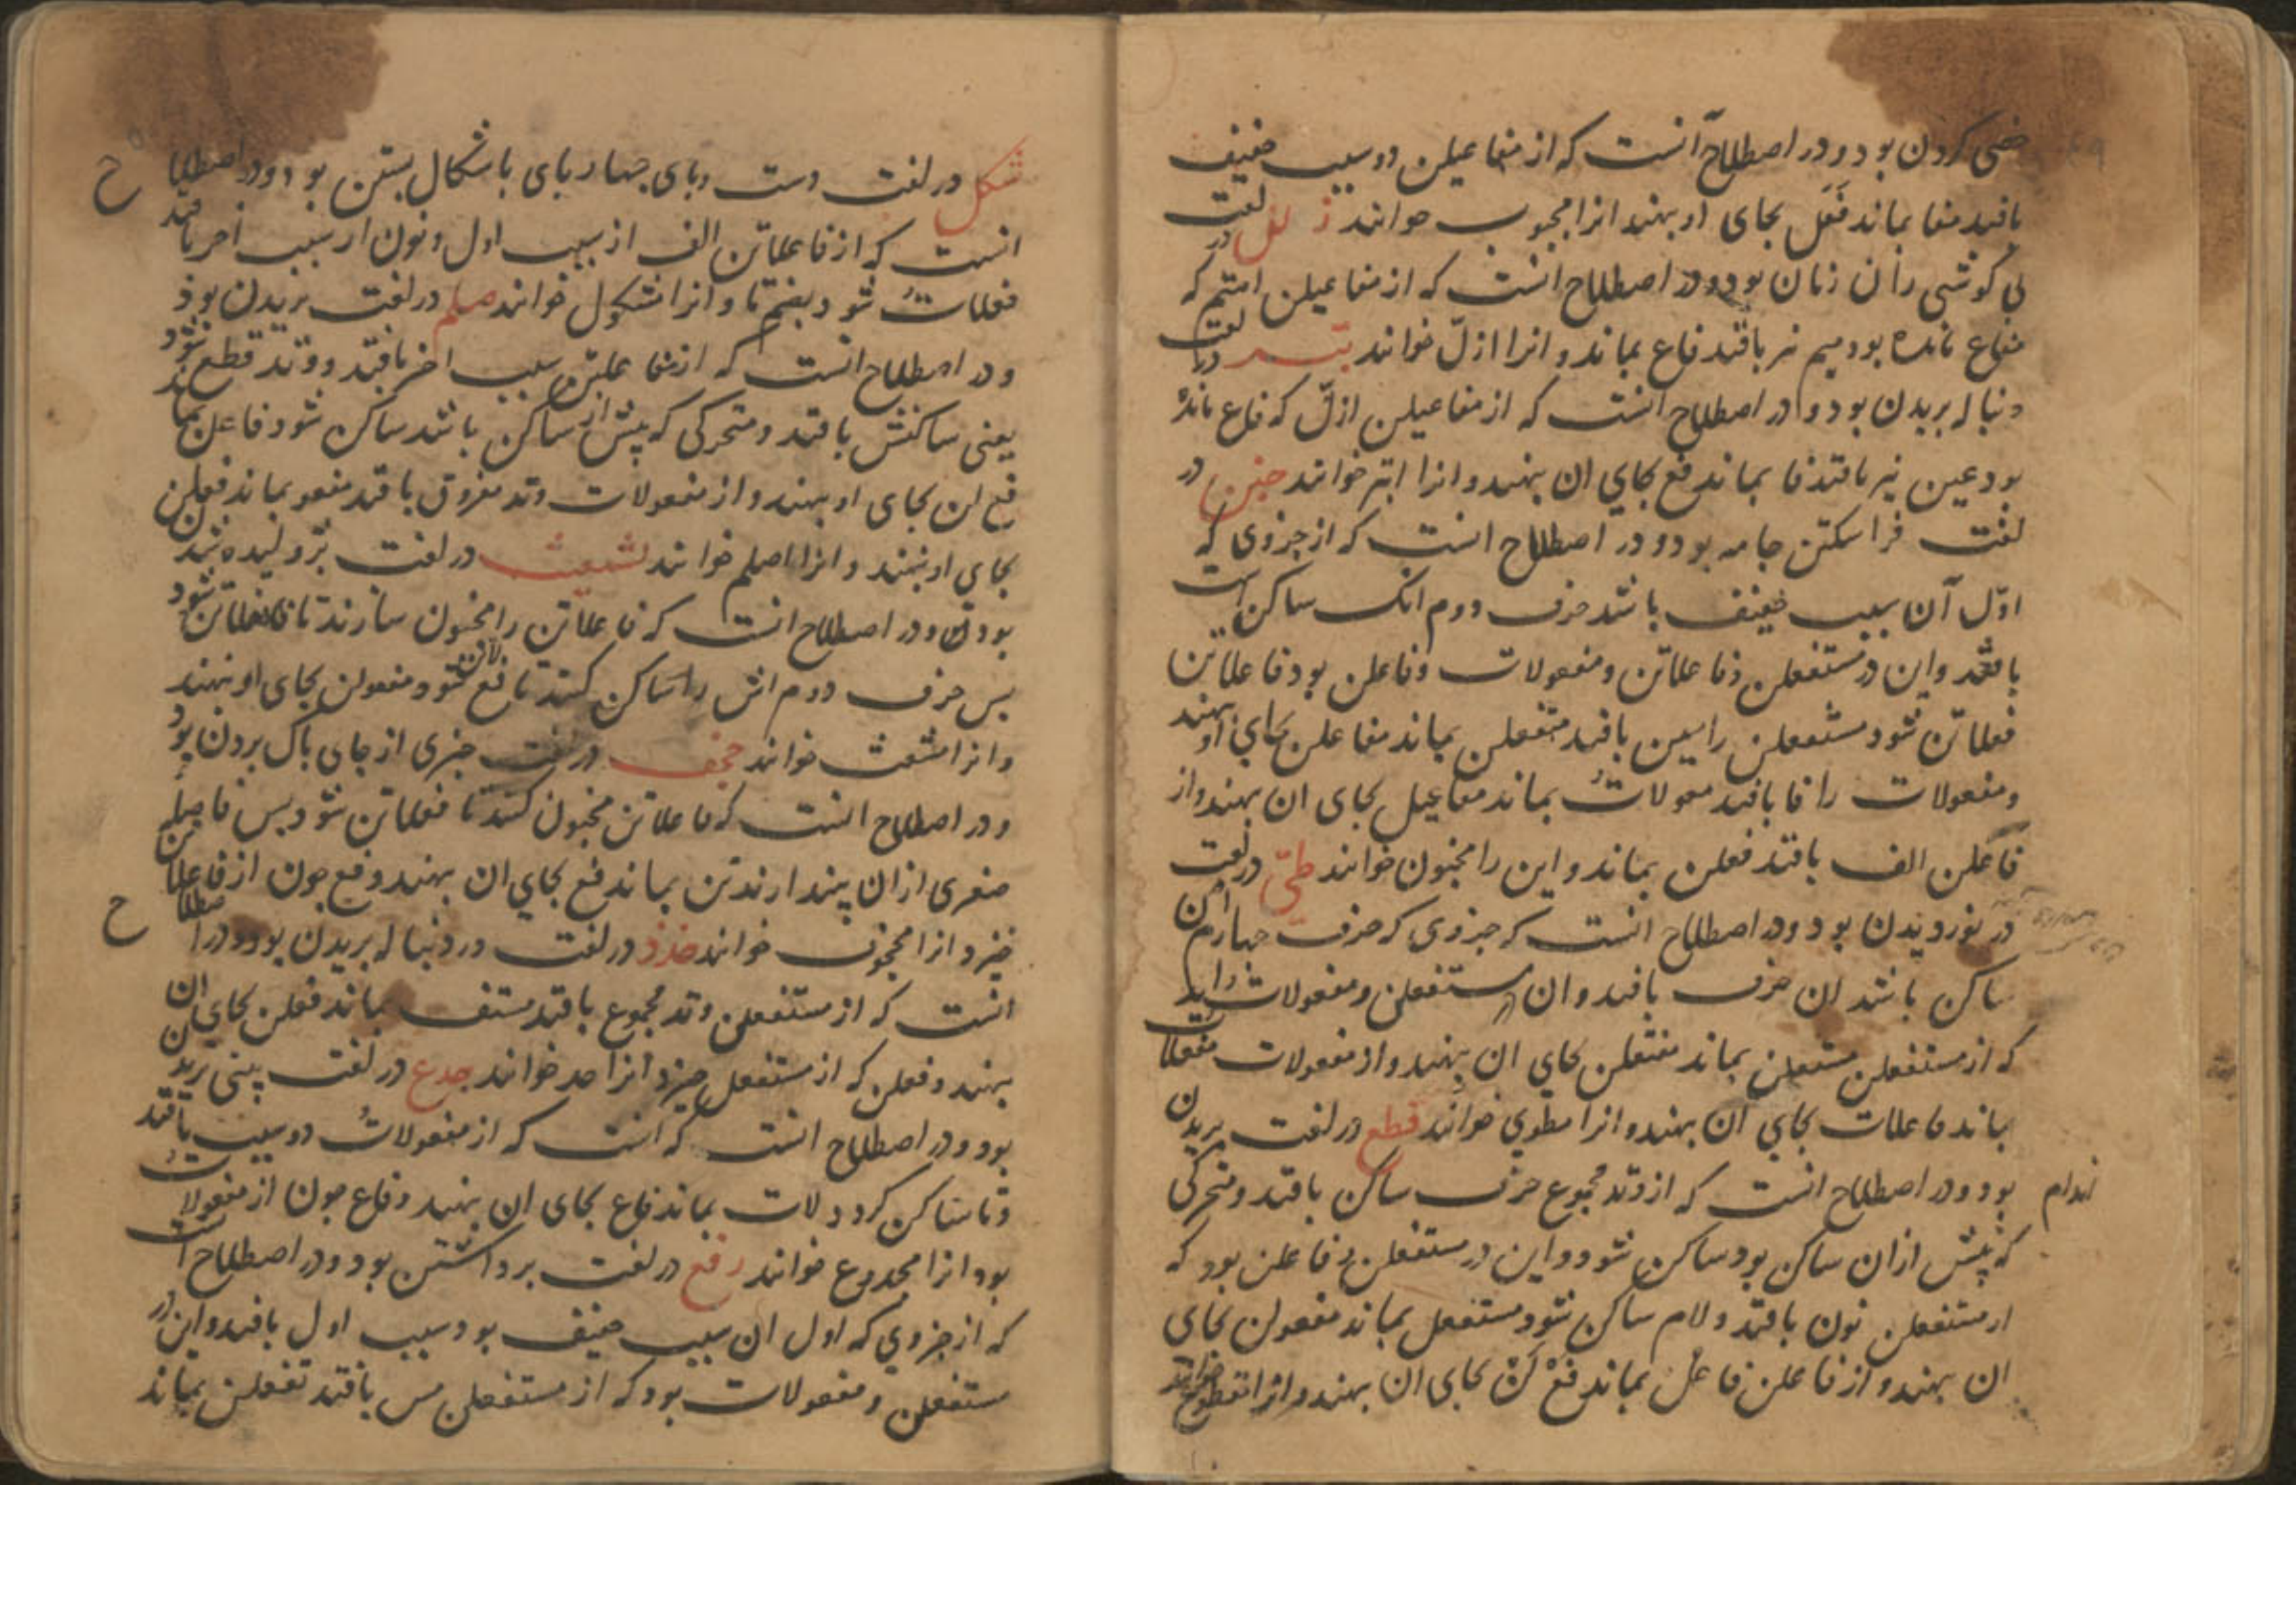 خصی کردن بود و در اصطلاح آنست که از مفاعیلن دو سبب خفیف
بافتد مفا بماند فَعَل بجای او بنهند انرا مجبوب خوانند زلل در لغت
بی کوشتی ران زنان بود و در اصطلاح انست که از مفاعیلن اهتم که
مفاع مانده بود میم نیز بافتد فاع بماند و انرا ازلّ خوانند بتر در لغت
دنباله بریدن بود و در اصطلاح انست که از مفاعیلن ازلّ که فاع مانده
بود عین نیز بافتد فا بماند فع بجای ان بنهند و انرا ابتر خوانند خبن در
لغت فراشکتن جامه بود و در اصطلاح انست که از جزوی که
اوّل آن سبب خفیف باشد حرف دوم انک ساکن است
بافتد و این در مستفعلن و فاعلاتن و مفعولات و فاعلن بود فاعلاتن
فعلاتن شود مستفعلن را سین بافتد متفعلن بماند مفاعلن بجای او بنهند
و مفعولات را فا بافتد معولاتُ بماند مفاعیل بجای ان بنهند و از
فاعلن الف بافتد فعلن بماند و این را مخبون خوانند طیّ در لغت
در نوردیدن بود و در اصطلاح انست که جزوی که حرف جهارم ان
ساکن باشد ان حرف بافتد و ان در مستفعلن و مفعولات اید
که از مستفعلن مستعلن بماند مفتعلن بجای ان بنهند و از مفعولات مفعلات
بماند فاعلات بجای ان بنهند و انرا مطوی خوانند قطع در لغت بریدن
بود و در اصطلاح انست که از وتد مجموع حرف ساکن بافتد و متحرکی
اندام
که پیش از ان ساکن بود ساکن شود و این در مستفعلن و فاعلن بود که
از مستفعلن نون بافتد و لام ساکن شود مستفعل بماند مفعولن بجای
ان بنهند و از فاعلن فاعل بماند فعْ لَن بجای ان بنهند و انرا مقطوع خوانند
شکل در لغت دست و بای جهاربای باشکال بستن بود و در اصطلاح
انست که از فاعلاتن الف از سبب اول و نون از سبب اخر بافتد
فعلاتُ شود و بضم تا و انرا مشکول خوانند صلم در لغت بریدن بود
و در اصطلاح انست که از مفاعلتن سبب اخر بافتد و وتد قطع شود
یعنی ساکنش بافتد و متحرکی که پیش از ساکن باشد ساکن شود فاعل بماند
فع لن بجای او بنهند و از مفعولات وتد مفروق بافتد مفعو بماند فعلن
بجای او بنهند و انرا اصلم خوانند تشعیث در لغت ژولیده شد
بود و در اصطلاح انست که فاعلاتن را مخبون سازند تا فعلاتن شود
بس حرف دوم اش را ساکن کنند تا فع لاتن شود مفعولن بجای او بنهند
و انرا مشعث خوانند جحف در لغت جیزی از جای باک بردن بود
و در اصطلاح انست که فاعلاتن مخبون کنند تا فعلاتن شود بس فاصله
صغری از ان بیندازند تن بماند فع بجای ان بنهند و فع جون از فاعلاتن
خیزد انرا مجحوف خوانند حذذ در لغت در دنباله بریدن بود و در اصطلاح
انست که از مستفعلن وتد مجموع بافتد مستف بماند فعلن بجای ان
بنهند و فعلن که از مستفعل خیزد انرا احد خوانند جدع در لغت بینی بریدن
بود و در اصطلاح انست که انست که از مفعولاتُ دو سبب بافتد
و تا ساکن کردد لات بماند فاع بجای ان بنهند و فاع جون از مفعولاتُ
بود انرا مجدوع خوانند رفع در لغت برداشتن بود و در اصطلاح انست
که از جزوی که اول ان سبب خفیف بود سبب اول بافتد و این در
مستفعلن و مفعولات بود که از مستفعلن مس بافتد تفعلن بماند